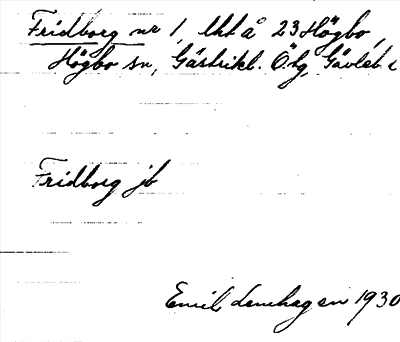 Fridborg nr 1, Uht å 23 Högbo,
Högbo sn, Gästrikl. Ö. tg, Gävleb l
Fridborg jb
Emil Lenhagen 1930